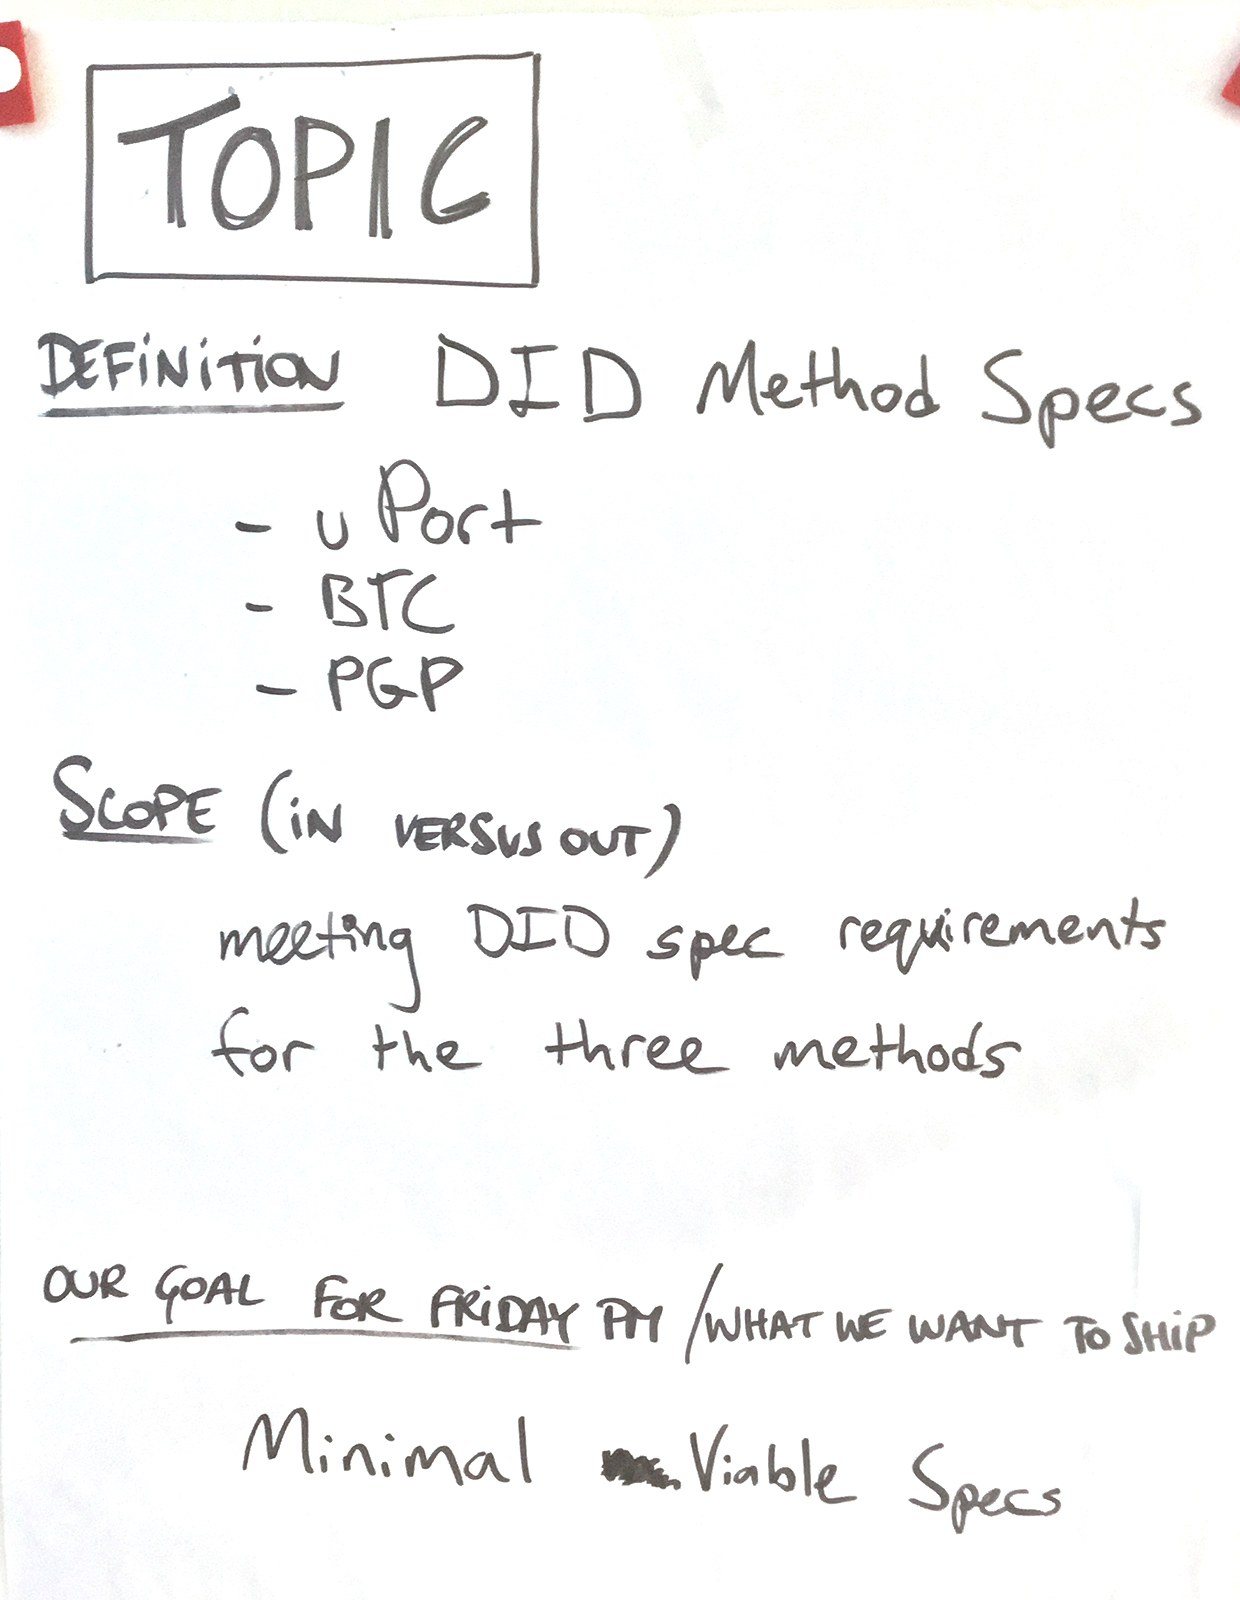 TOPIC
DEFINITION DID Method Specs
- uPort
- BTC
- PGP
SCOPE (IN VERSUS OUT)
meeting DID spec requirements
for the three methods
OUR GOAL FOR FRIDAY PM / WHAT WE WANT TO SHIP
Minimal Viable Specs